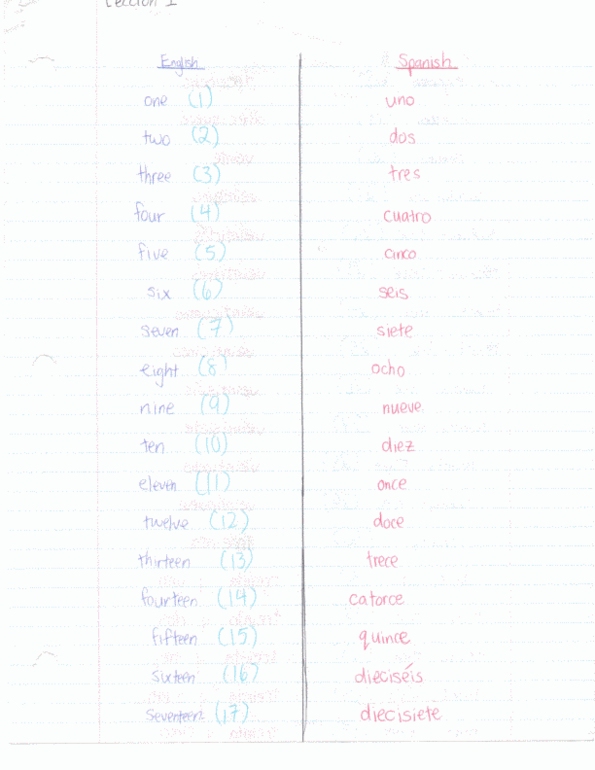 Lección 1
English Spanish
one (1) uno
two (2) dos
three (3) tres
four (4) cuatro
five (5) cinco
six (6) seis
seven (7) siete
eight (8) ocho
nine (9) nueve
ten (10) diez
eleven (11) once
twelve (12) doce
thirteen (13) trece
fourteen (14) catorce
fifteen (15) quince
sixteen (16) dieciséis
seventeen (17) diecisiete